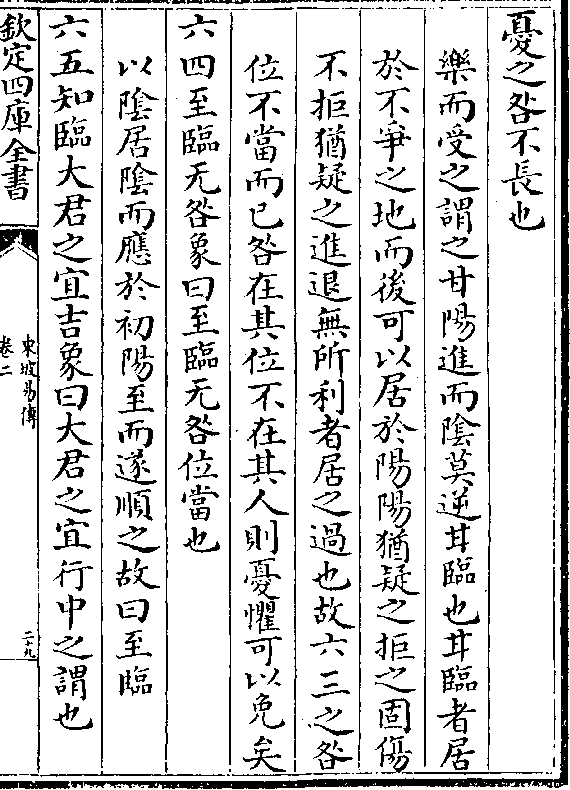 憂之咎不長也
樂而受之謂之甘陽進而陰莫逆甘臨也甘臨者居
於不爭之地而後可以居於陽陽猶疑之拒之固傷
不拒猶疑之進退無所利者居之過也故六三之咎
位不當而已咎在其位不在其人則憂懼可以免矣
六四至臨无咎象曰至臨无咎位當也
以陰居陰而應於初陽至而遂順之故曰至臨
六五知臨大君之宜吉象曰大君之宜行中之謂也
欽定四庫全書
東坡易傳
卷二
二十九